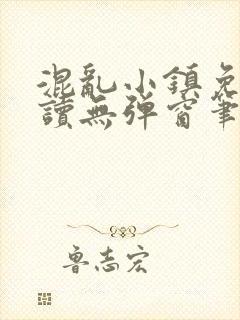 混亂小鎮免
讀無彈窗筆
魯志宏